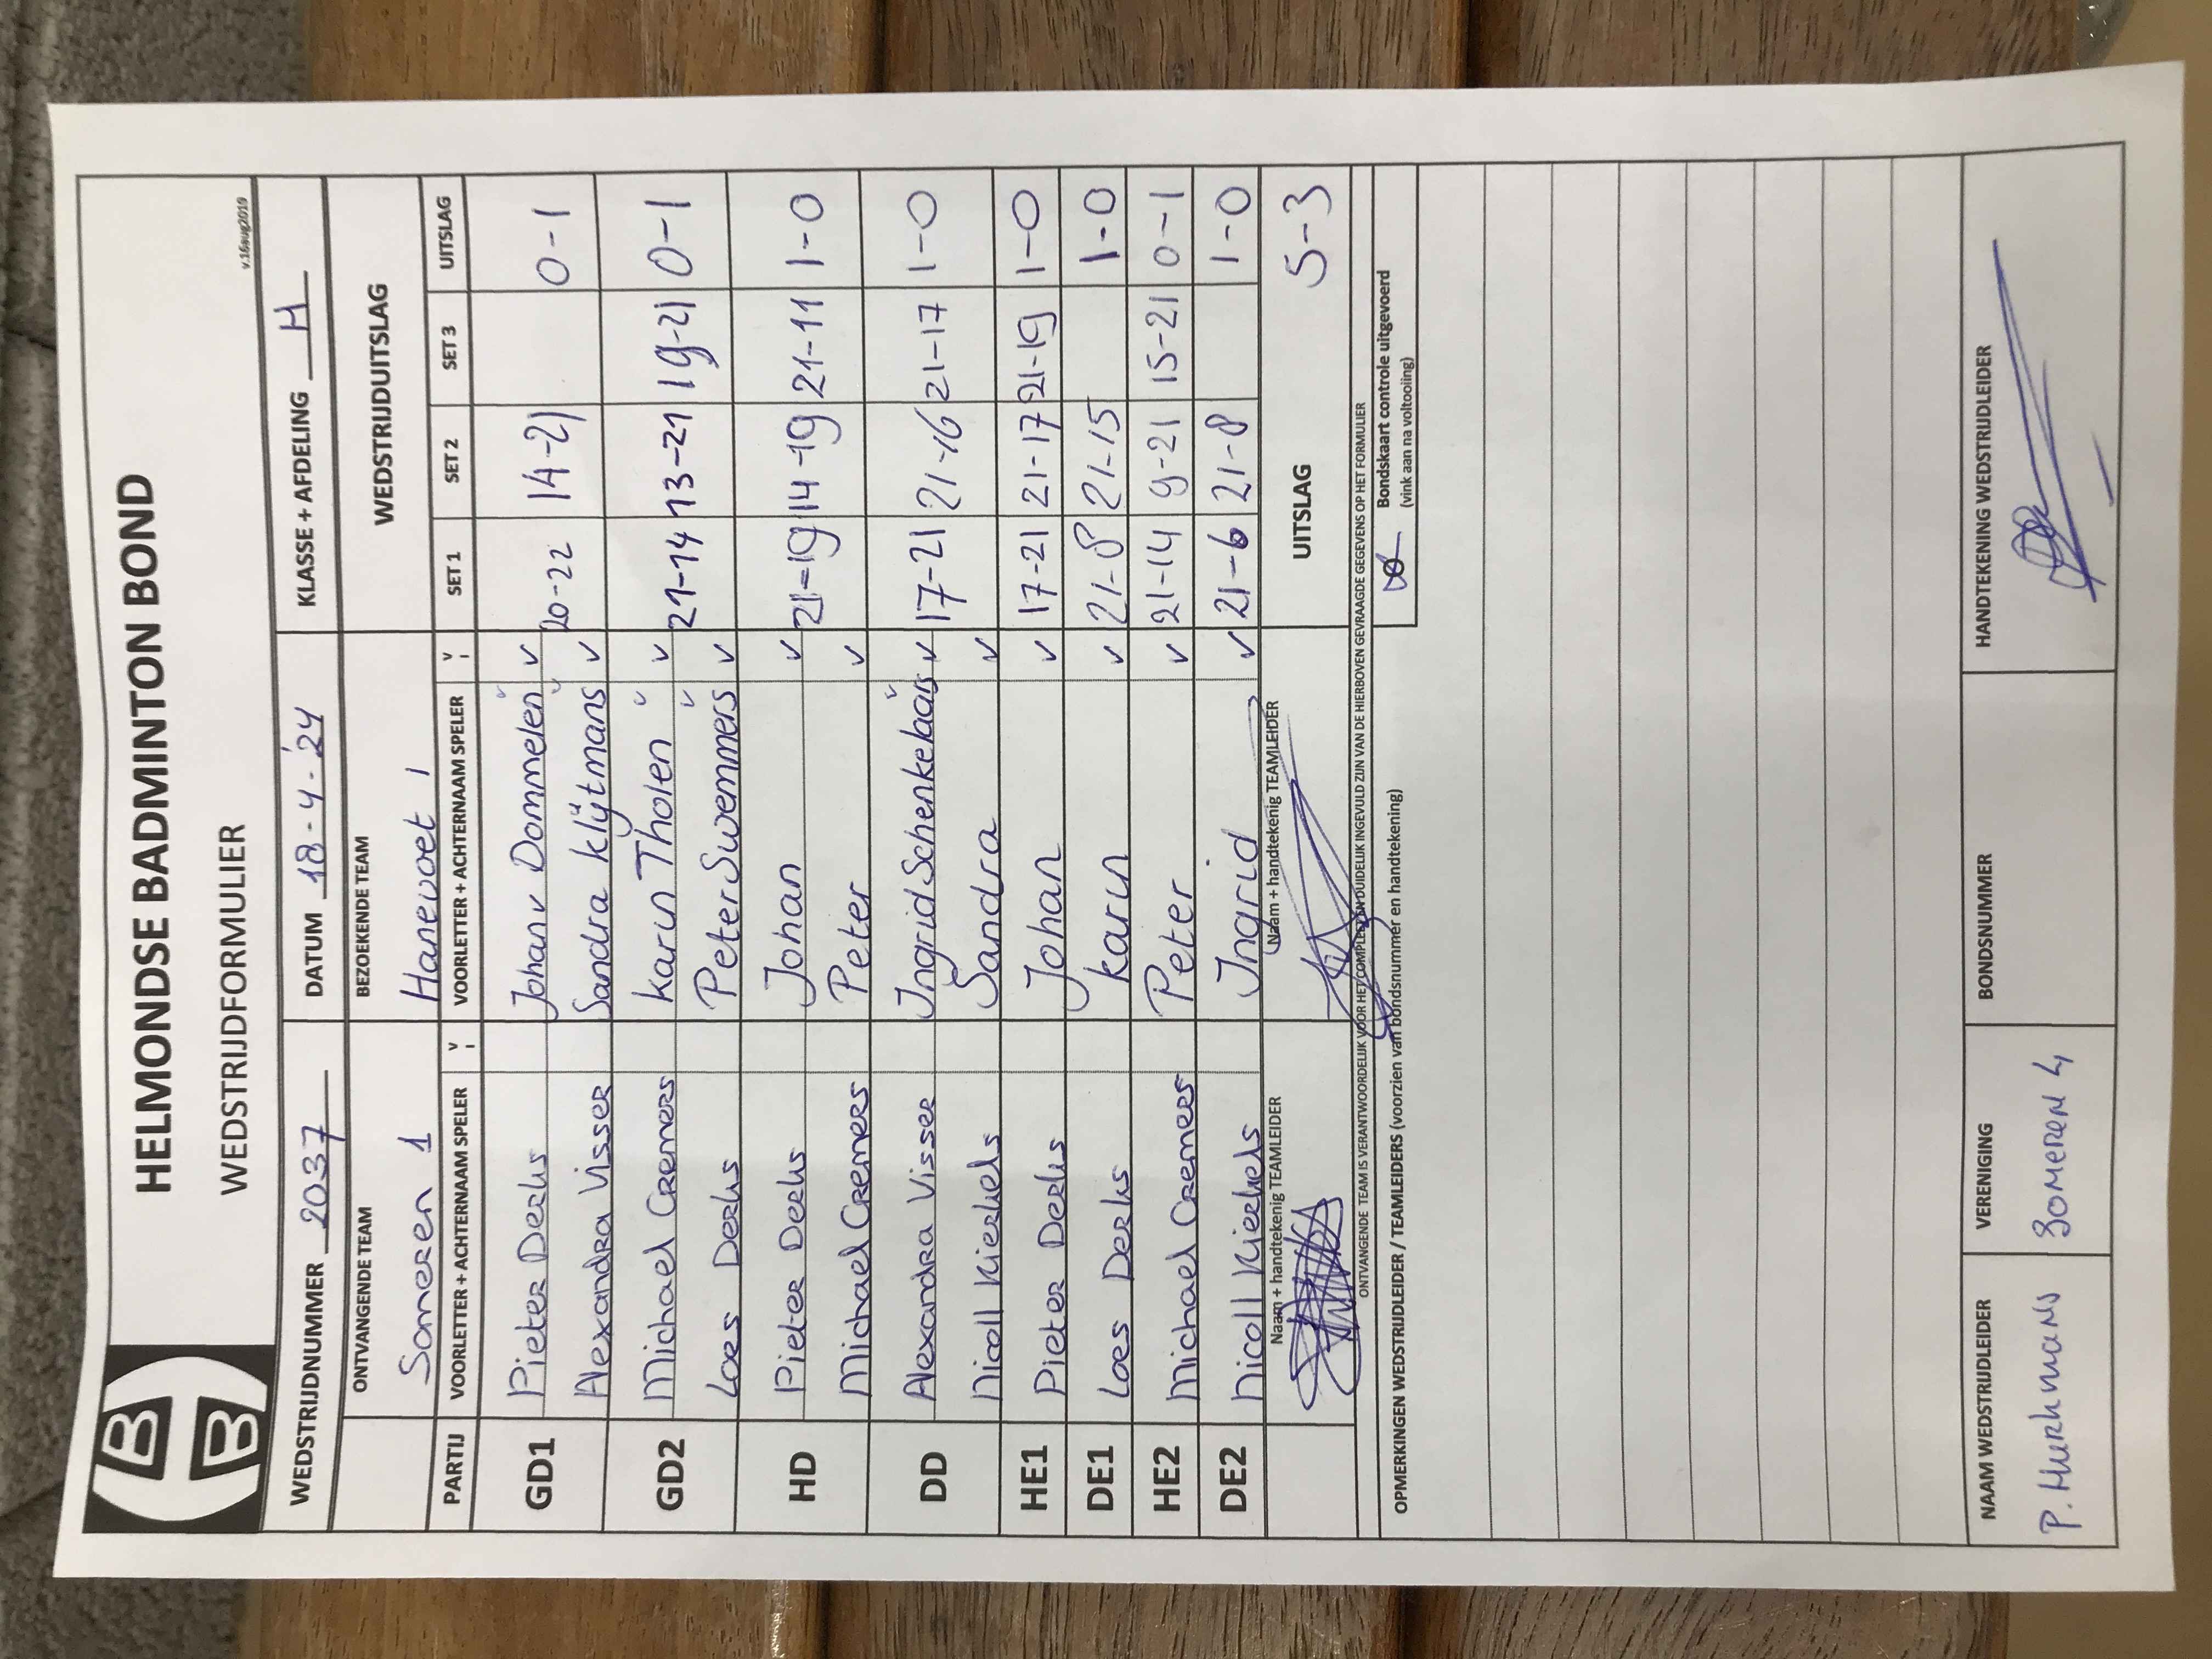 HELMONDSE BADMINTON BOND
WEDSTRIJDFORMULIER
v.16aug2019
WEDSTRIJDNUMMER 2037 DATUM 18-4-'24 KLASSE + AFDELING H
ONTVANGENDE TEAM BEZOEKENDE TEAM WEDSTRIJDUITSLAG
Someren 1 Hanevoet 1
PARTIJ VOORLETTER + ACHTERNAAM SPELER V VOORLETTER + ACHTERNAAM SPELER V SET 1 SET 2 SET 3 UITSLAG
GD1 Pieter Derks Johan v Dommelen v 20-22 14-21 0-1
Alexandra Visser Sandra Klijtmans v
GD2 Michael Cremers Karin Tholen v 21-14 13-21 19-21 0-1
Loes Derks Peter Swemmers v
HD Pieter Derks Johan v 21-19 14-19 21-11 1-0
Michael Cremers Peter v
DD Alexandra Visser Ingrid Schenkelaars v 17-21 21-16 21-17 1-0
Nicoll Kierkels Sandra v
HE1 Pieter Derks Johan v 17-21 21-17 21-19 1-0
DE1 Loes Derks Karin v 21-8 21-15 1-0
HE2 Michael Cremers Peter v 21-14 9-21 15-21 0-1
DE2 Nicoll Kierkels Ingrid v 21-6 21-8 1-0
Naam + handtekenig TEAMLEIDER Naam + handtekenig TEAMLEIDER UITSLAG 5-3
ONTVANGENDE TEAM IS VERANTWOORDELIJK VOOR HET COMPLEET EN DUIDELIJK INGEVULD ZIJN VAN DE HIERBOVEN GEVRAAGDE GEGEVENS OP HET FORMULIER
OPMERKINGEN WEDSTRIJDLEIDER / TEAMLEIDERS (voorzien van bondsnummer en handtekening) Bondskaart controle uitgevoerd
(vink aan na voltooiing)
NAAM WEDSTRIJDLEIDER VERENIGING BONDSNUMMER HANDTEKENING WEDSTRIJDLEIDER
P. Hurkmans Someren 4